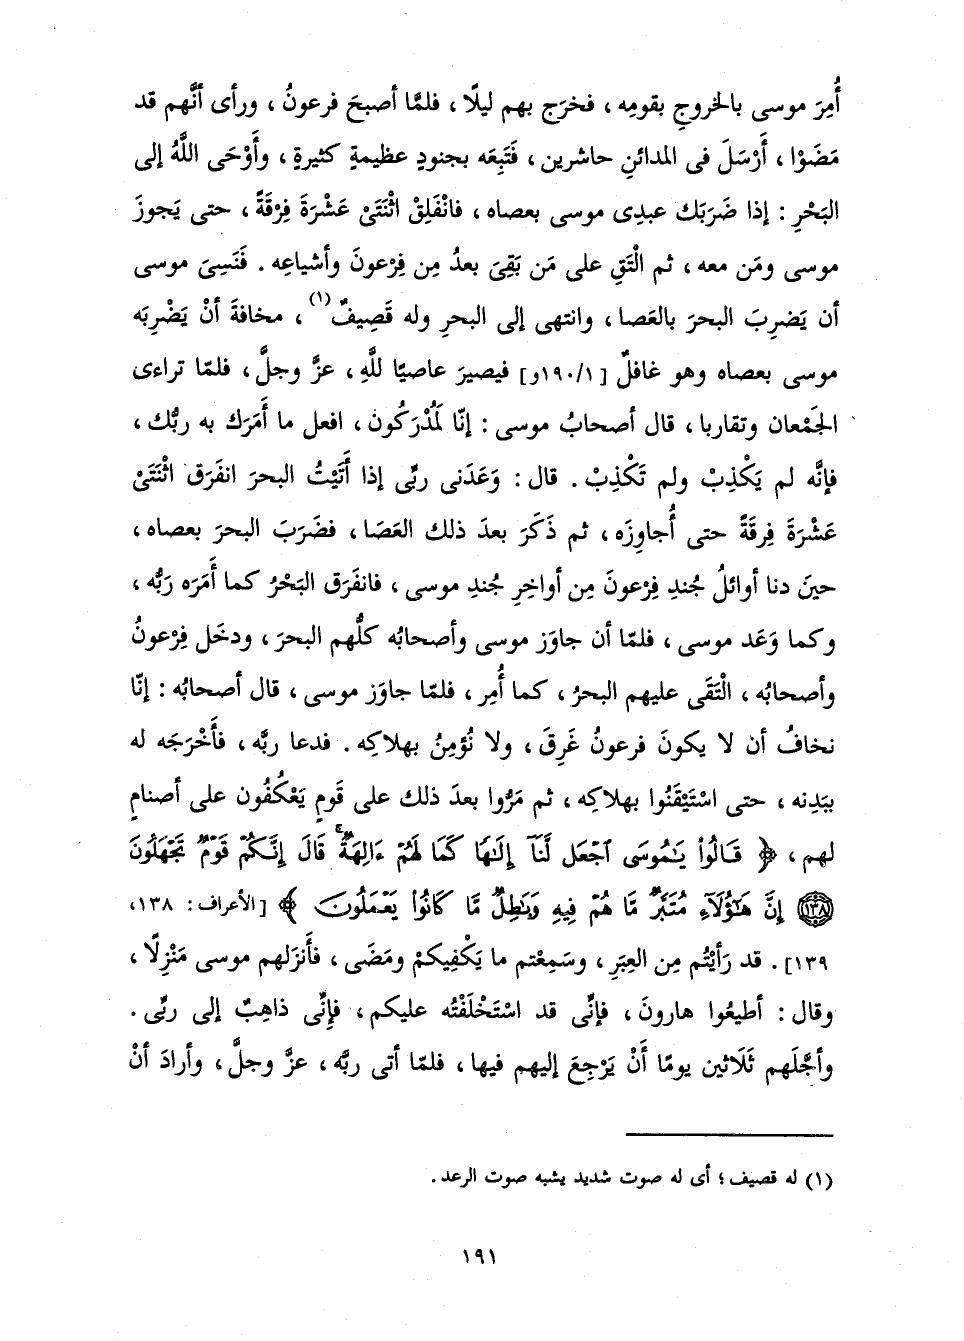 أُمِرَ موسى بالخروجِ بقومِه ، فخرَج بهم ليلًا ، فلمَّا أصبحَ فرعونُ ، ورأى أنَّهم قد
مَضَوْا ، أَرْسَلَ فى المدائنِ حاشرين ، فَتَبِعَه بجنودٍ عظيمةٍ كثيرةٍ ، وأَوْحَى اللَّهُ إلى
البَحْرِ : إذا ضَرَبَك عبدِى موسى بعصاه ، فانْفَلِقْ اثْنَتَىْ عَشْرَةَ فِرْقَةً ، حتى يَجوزَ
موسى ومَن معه ، ثم الْتَقِ على مَن بَقِىَ بعدُ مِن فِرْعونَ وأشياعِه . فَنَسِىَ موسى
أن يَضرِبَ البحرَ بالعَصا ، وانتهى إلى البحرِ وله قَصِيفٌ(١) ، مخافةَ أنْ يَضْرِبَه
موسى بعصاه وهو غافلٌ [١٩٠/١و] فيصيرَ عاصيًا للَّهِ ، عزَّ وجلَّ ، فلمّا تراءى
الجَمْعان وتقاربا ، قال أصحابُ موسى : إنّا لَمُدْرَكُون ، افعل ما أَمَرَك به ربُّك ،
فإنَّه لم يَكْذِبْ ولم تَكْذِبْ . قال : وَعَدَنى ربِّى إذا أَتَيْتُ البحرَ انفَرَق اثْنَتَىْ
عَشْرَةَ فِرقَةً حتى أُجاوِزَه ، ثم ذَكَرَ بعدَ ذلك العَصَا ، فضَرَبَ البحرَ بعصاه ،
حينَ دنا أوائلُ جُندِ فِرْعونَ مِن أواخِرِ جُندِ موسى ، فانفَرَق البَحْرُ كما أَمَرَه رَبُّه ،
وكما وَعَد موسى ، فلمّا أن جاوَز موسى وأصحابُه كلُّهم البحرَ ، ودخَل فِرْعونُ
وأصحابُه ، الْتَقَى عليهم البحرُ ، كما أُمِر ، فلمّا جاوَز موسى ، قال أصحابُه : إنّا
نخافُ أن لا يكونَ فرعونُ غَرِقَ ، ولا نُؤمِنُ بهلاكِه . فدعا ربَّه ، فأَخْرَجَه له
ببَدنِه ، حتى اسْتَيْقَنُوا بهلاكِه ، ثم مَرُّوا بعدَ ذلك على قَومٍ يَعْكُفُون على أصنامٍ
لهم ، ﴿ قَالُواْ يَٰمُوسَى ٱجْعَل لَّنَآ إِلَٰهًا كَمَا لَهُمْ ءَالِهَةٌۚ قَالَ إِنَّكُمْ قَوْمٌ تَجْهَلُونَ
(١٣٨) إِنَّ هَٰٓؤُلَآءِ مُتَبَّرٌ مَّا هُمْ فِيهِ وَبَٰطِلٌ مَّا كَانُواْ يَعْمَلُونَ ﴾ [الأعراف : ١٣٨،
١٣٩] . قد رَأَيْتُم مِن العِبَرِ ، وسَمِعْتم ما يَكْفِيكمْ ومَضَى ، فأَنزَلهم موسى مَنْزِلًا ،
وقال : أطيعُوا هارونَ ، فإنِّى قد اسْتَخْلَفْتُه عليكم ، فإِنِّى ذاهِبٌ إلى ربِّى .
وأجَّلَهم ثَلَاثين يومًا أَنْ يَرْجِعَ إليهم فيها ، فلمّا أتى ربَّه ، عزَّ وجلَّ ، وأرادَ أنْ
(١) له قصيف ؛ أى له صوت شديد يشبه صوت الرعد .
١٩١